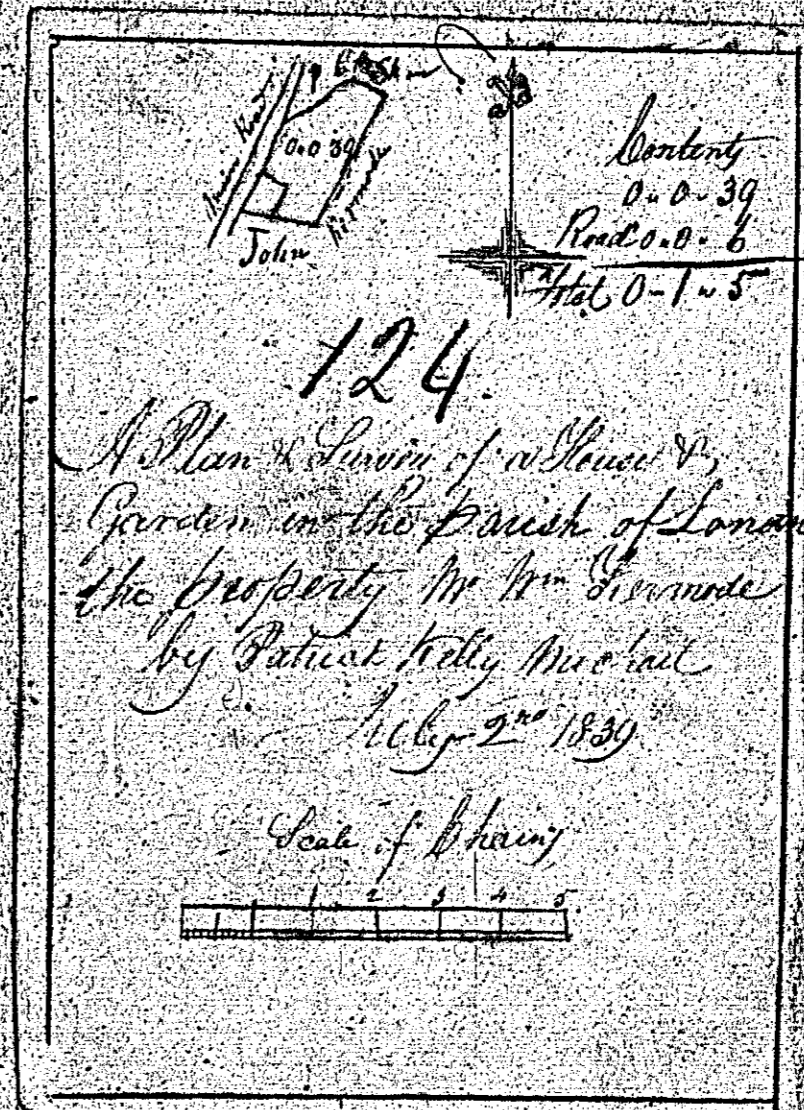 Road
0..0..39
John
Contents
0..0..39
Road 0..0..6
Total 0-1..5
124.
A Plan & Survey of a House &
Garden in the Parish of Lonan
the property Mr Wm Kermode
by Patrick Kelly
July 2nd 1839
Scale of Chains
1 2 3 4 5